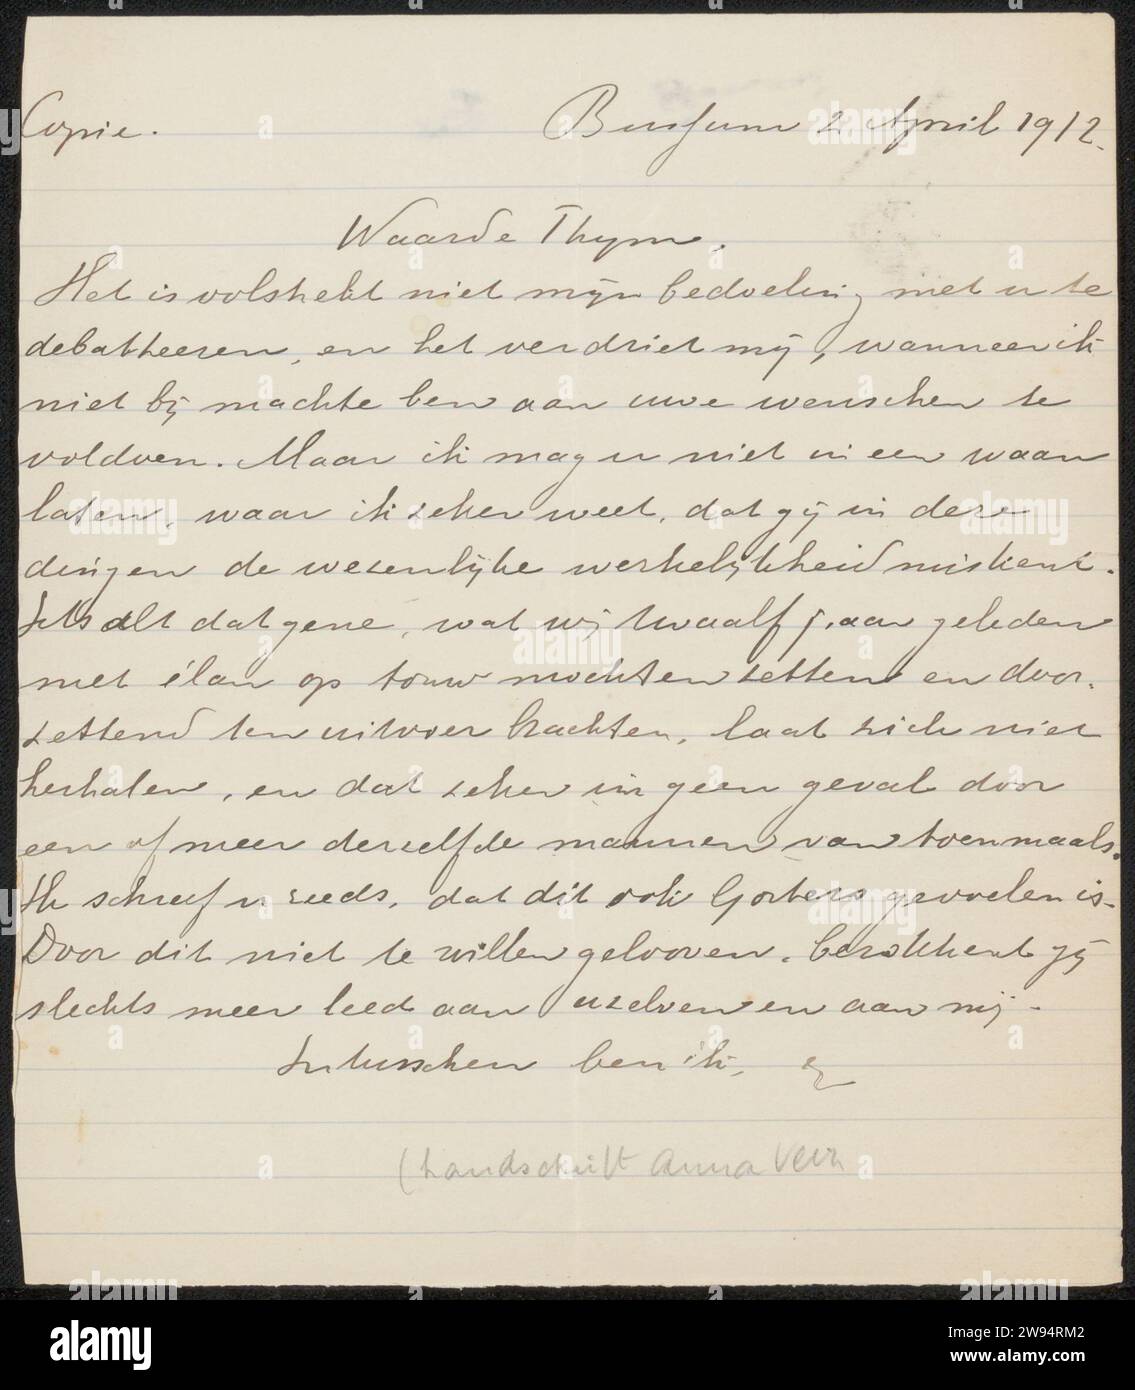 Copie. Bussum 2 April 1912.
Waarde Thym.
Het is volstrekt niet mijn bedoeling met u te
debatteeren, en het verdriet mij, wanneer ik
niet bij machte ben aan uwe wenschen te
voldoen. Maar ik mag u niet in een waan
laten, waar ik zeker weet, dat gij in deze
dingen de wezenlijke werkelijkheid miskent.
Iets als datgene, wat wij twaalf jaar geleden
met élan op touw mochten zetten en door-
zettend ten uitvoer brachten, laat zich niet
herhalen, en dat zeker in geen geval door
een of meer derzelfde mannen van toenmaals.
Ik schreef u reeds, dat dit ook Gorters gevoelen is-
Door dit niet te willen gelooven, berokkent gij
slechts meer leed aan uzelven en aan mij -
Intusschen ben ik,
(handschrift Anna
alamy
a
alamy
Image ID: 2W94RM2
www.alamy.com